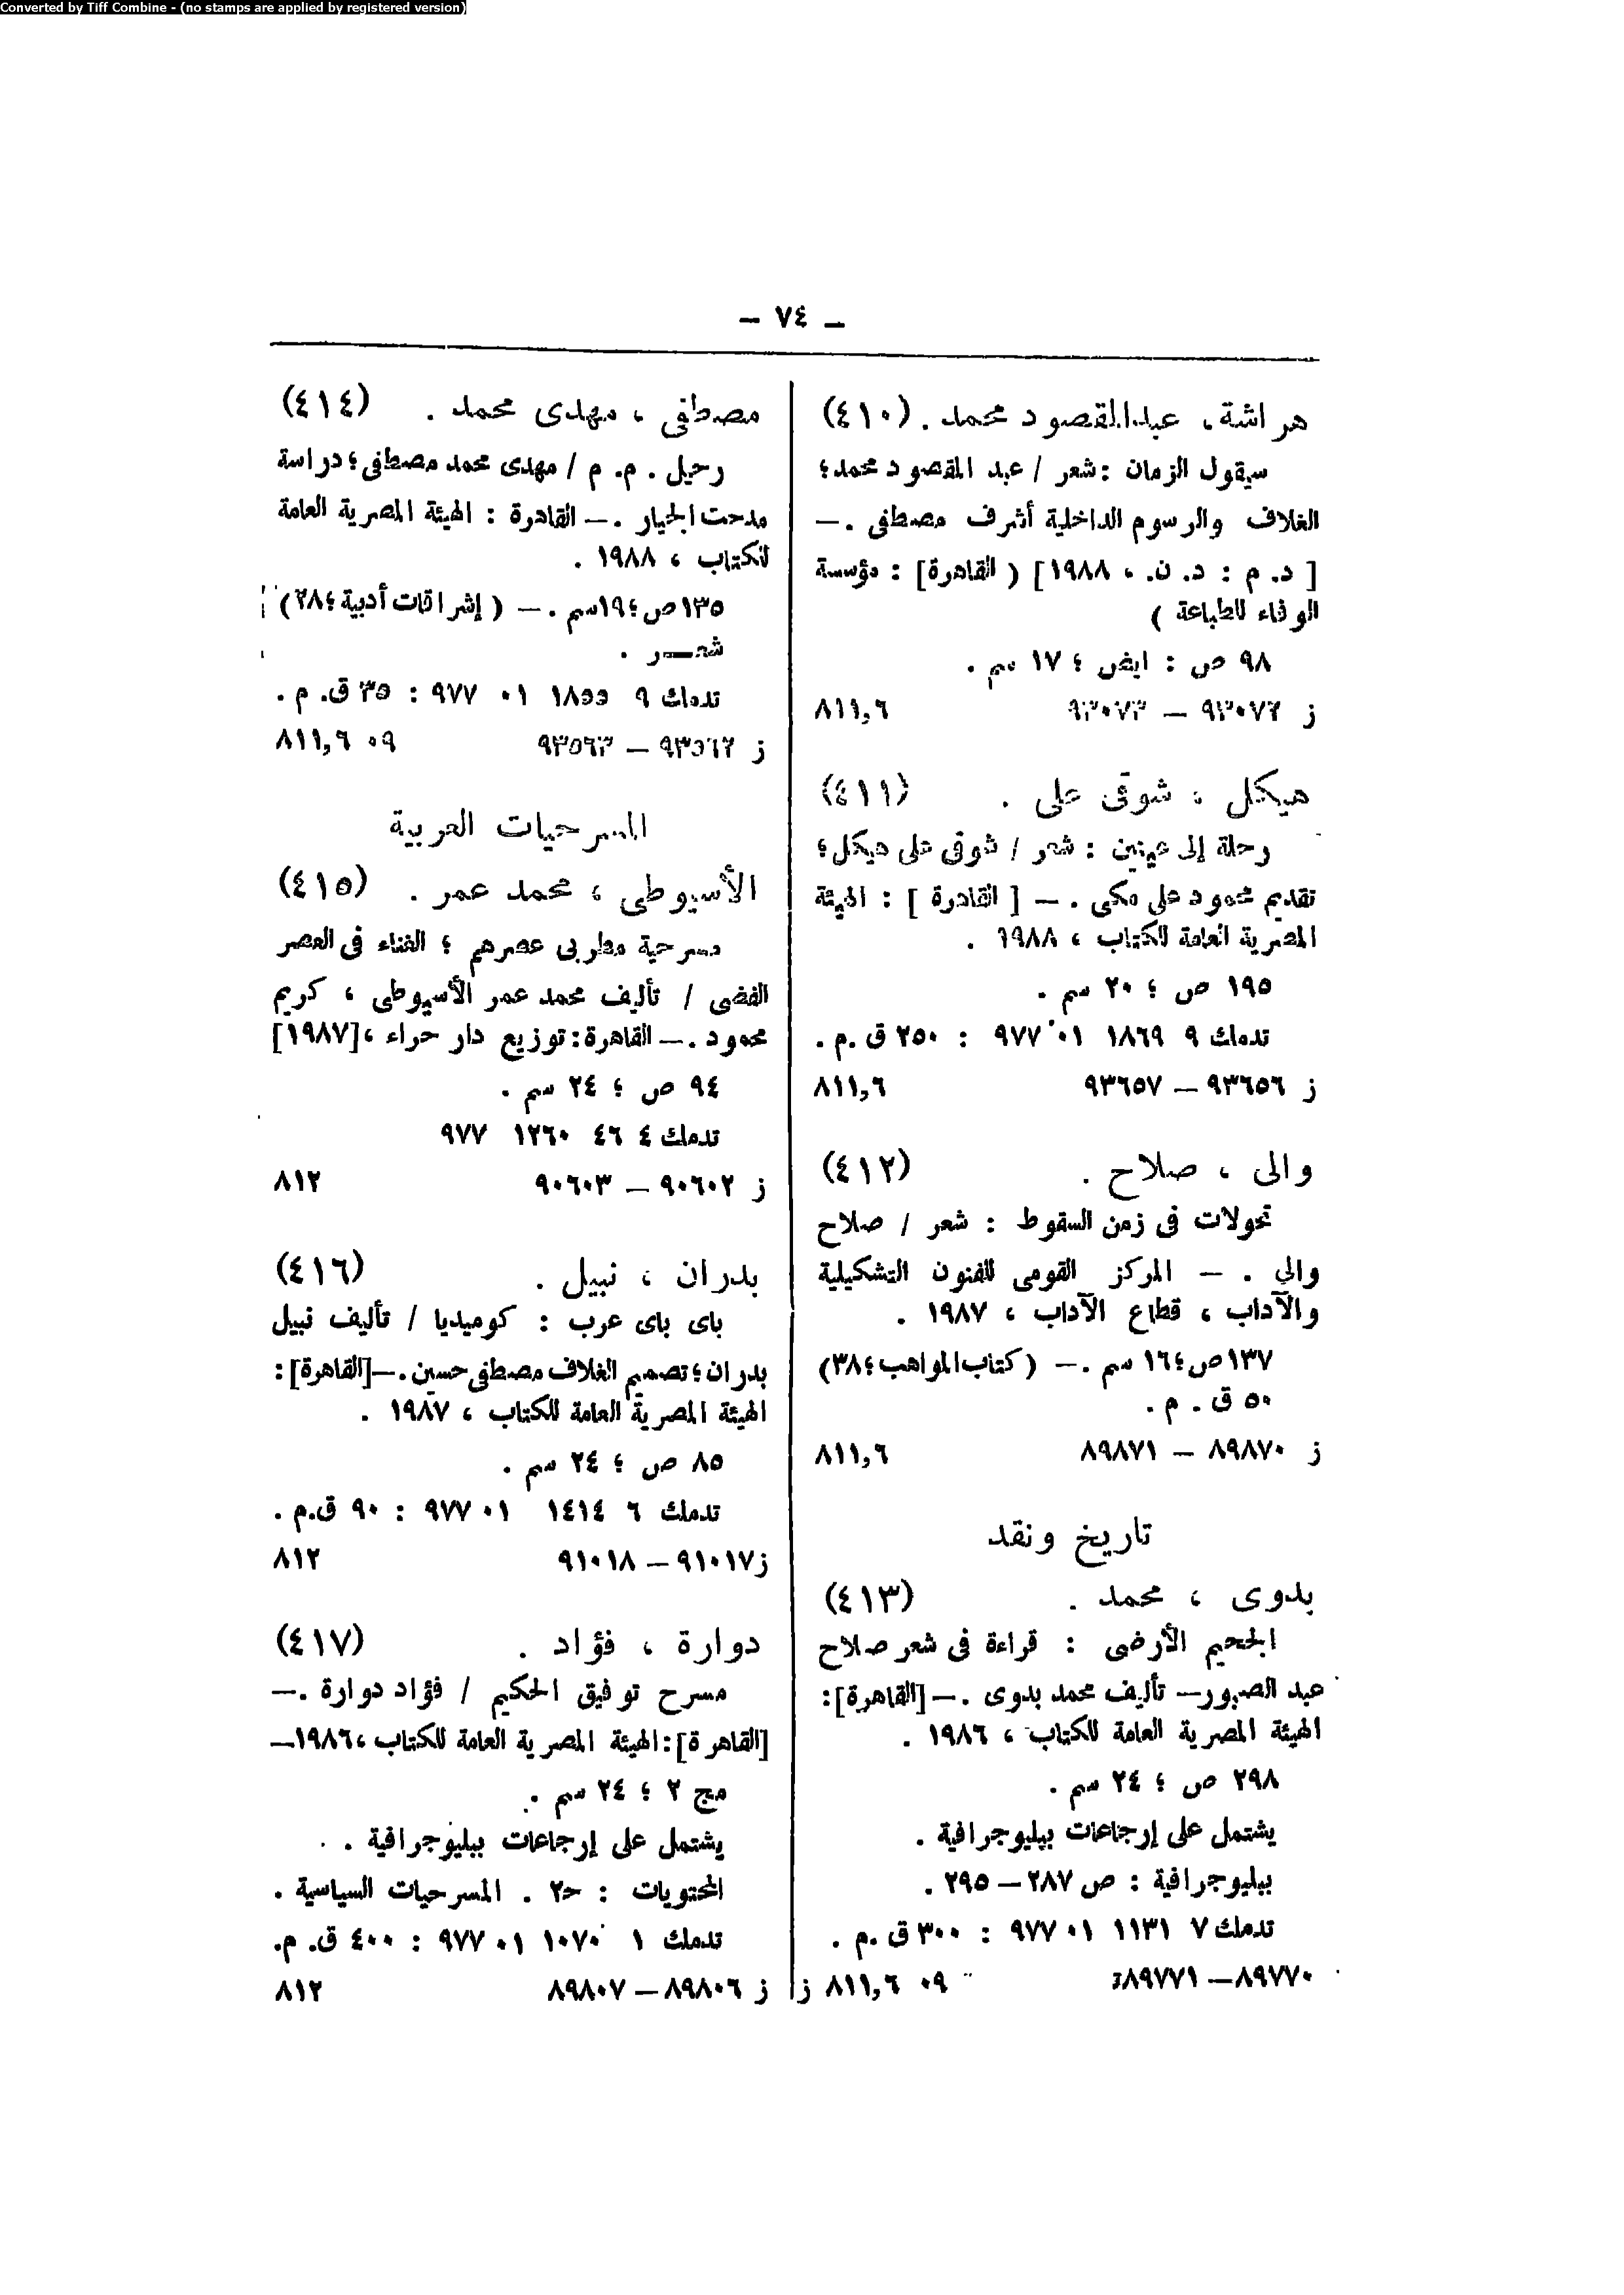 Converted by Tiff Combine - (no stamps are applied by registered version)
– ٧٤ –
هراشة، عبدالمقصود محمد . (٤١٠)
سيقول الزمان : شعر / عبد المقصود محمد؛
الغلاف والرسوم الداخلية أشرف مصطفى . –
[ د. م : د. ن. ، ١٩٨٨] ( القاهرة] : مؤسسة
الوفاء للطباعة )
٩٨ ص : ايض ؛ ١٧ سم .
ز ٩٣٠٧٢ – ٩٣٠٧٣ ٨١١,٦
هيكل ، شوقى على . (٤١١)
رحلة إلى عينين : شعر / شوقى على هيكل؛
تقديم محمود على مكى . – [ القاهرة ] : الهيئة
المصرية العامة للكتاب ، ١٩٨٨ .
١٩٥ ص ؛ ٢٠ سم .
تدمك ٩ ١٨٦٩ ٠١ ٩٧٧ : ٢٥٠ ق .م .
ز ٩٣٦٥٦ – ٩٣٦٥٧ ٨١١,٦
والى ، صلاح . (٤١٢)
تحولات فى زمن السقوط : شعر / صلاح
والي . – المركز القومى للفنون التشكيلية
والآداب ، قطاع الآداب ، ١٩٨٧ .
١٣٧ص؛١٦ سم .– (كتاب المواهب؛٣٨)
٥٠ ق . م .
ز ٨٩٨٧٠ – ٨٩٨٧١ ٨١١,٦
تاريخ ونقد
بدوى ، محمد . (٤١٣)
الجحيم الأرضى : قراءة فى شعر صلاح
عبد الصبور– تأليف محمد بدوى .–[القاهرة]:
الهيئة المصرية العامة للكتاب ، ١٩٨٦ .
٢٩٨ ص ؛ ٢٤ سم .
يشتمل على إرجاعات ببليوجرافية .
ببليوجرافية : ص ٢٨٧ – ٢٩٥ .
تدمك ٧ ١١٣١ ٠١ ٩٧٧ : ٣٠٠ ق .م .
٨٩٧٧٠–٨٩٧٧١ ٠٩ ٨١١,٦ ز
مصطفى ، مهدى محمد . (٤١٤)
رحيل . م. م / مهدى محمد مصطفى؛ دراسة
مدحت الجيار .– القاهرة : الهيئة المصرية العامة
للكتاب ، ١٩٨٨ .
١٣٥ص؛١٩سم .– ( إشراقات أدبية ؛٢٨)
شعـر .
تدمك ٩ ١٨٥٥ ٠١ ٩٧٧ : ٣٥ ق. م .
ز ٩٣٥٦٢ – ٩٣٥٦٣ ٠٩ ٨١١,٦
المسرحيات العربية
الأسيوطى ، محمد عمر . (٤١٥)
مسرحية مطربى عصرهم ؛ الغناء فى العصر
الفضى / تأليف محمد عمر الأسيوطى ، كريم
محمود .– القاهرة: توزيع دار حراء ،[١٩٨٧]
٩٤ ص ؛ ٢٤ سم .
تدمك ٤ ٤٦ ١٢٦٠ ٩٧٧
ز ٩٠٦٠٢ – ٩٠٦٠٣ ٨١٢
بدران ، نبيل . (٤١٦)
باى باى عرب : كوميديا / تأليف نبيل
بدران؛ تصميم الغلاف مصطفى حسين.–[القاهرة]:
الهيئة المصرية العامة للكتاب ، ١٩٨٧ .
٨٥ ص ؛ ٢٤ سم .
تدمك ٦ ١٤١٤ ٠١ ٩٧٧ : ٩٠ ق.م .
ز٩١٠١٧ – ٩١٠١٨ ٨١٢
دوارة ، فؤاد . (٤١٧)
مسرح توفيق الحكيم / فؤاد دوارة .–
[القاهرة]: الهيئة المصرية العامة للكتاب ،١٩٨٦–
مج ٢ ؛ ٢٤ سم .
يشتمل على إرجاعات ببليوجرافية .
المحتويات : حـ٢ . المسرحيات السياسية .
تدمك ١ ١٠٧٠ ٠١ ٩٧٧ : ٤٠٠ ق. م.
ز ٨٩٨٠٦ – ٨٩٨٠٧ ٨١٢